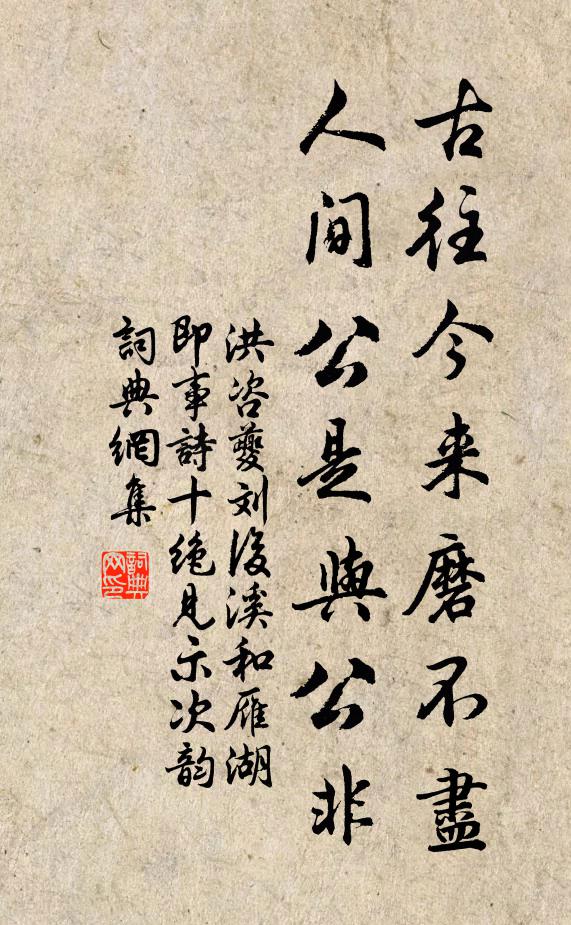 古往今来磨不盡
人間公是與公非
洪咨夔刘後溪和雁湖
即事詩十絶見示次韵
詞典網集
詞典
网印